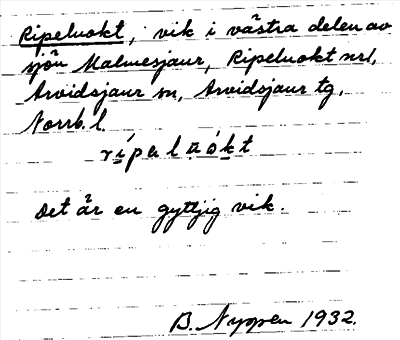 Ripeluokt, vik i västra delen av
sjön Malmesjaur, Ripeluokt nrl,
Arvidsjaur sn, Arvidsjaur tg,
Norrb. l.
Det är en gyttjig vik.
B. Nyppen 1932.